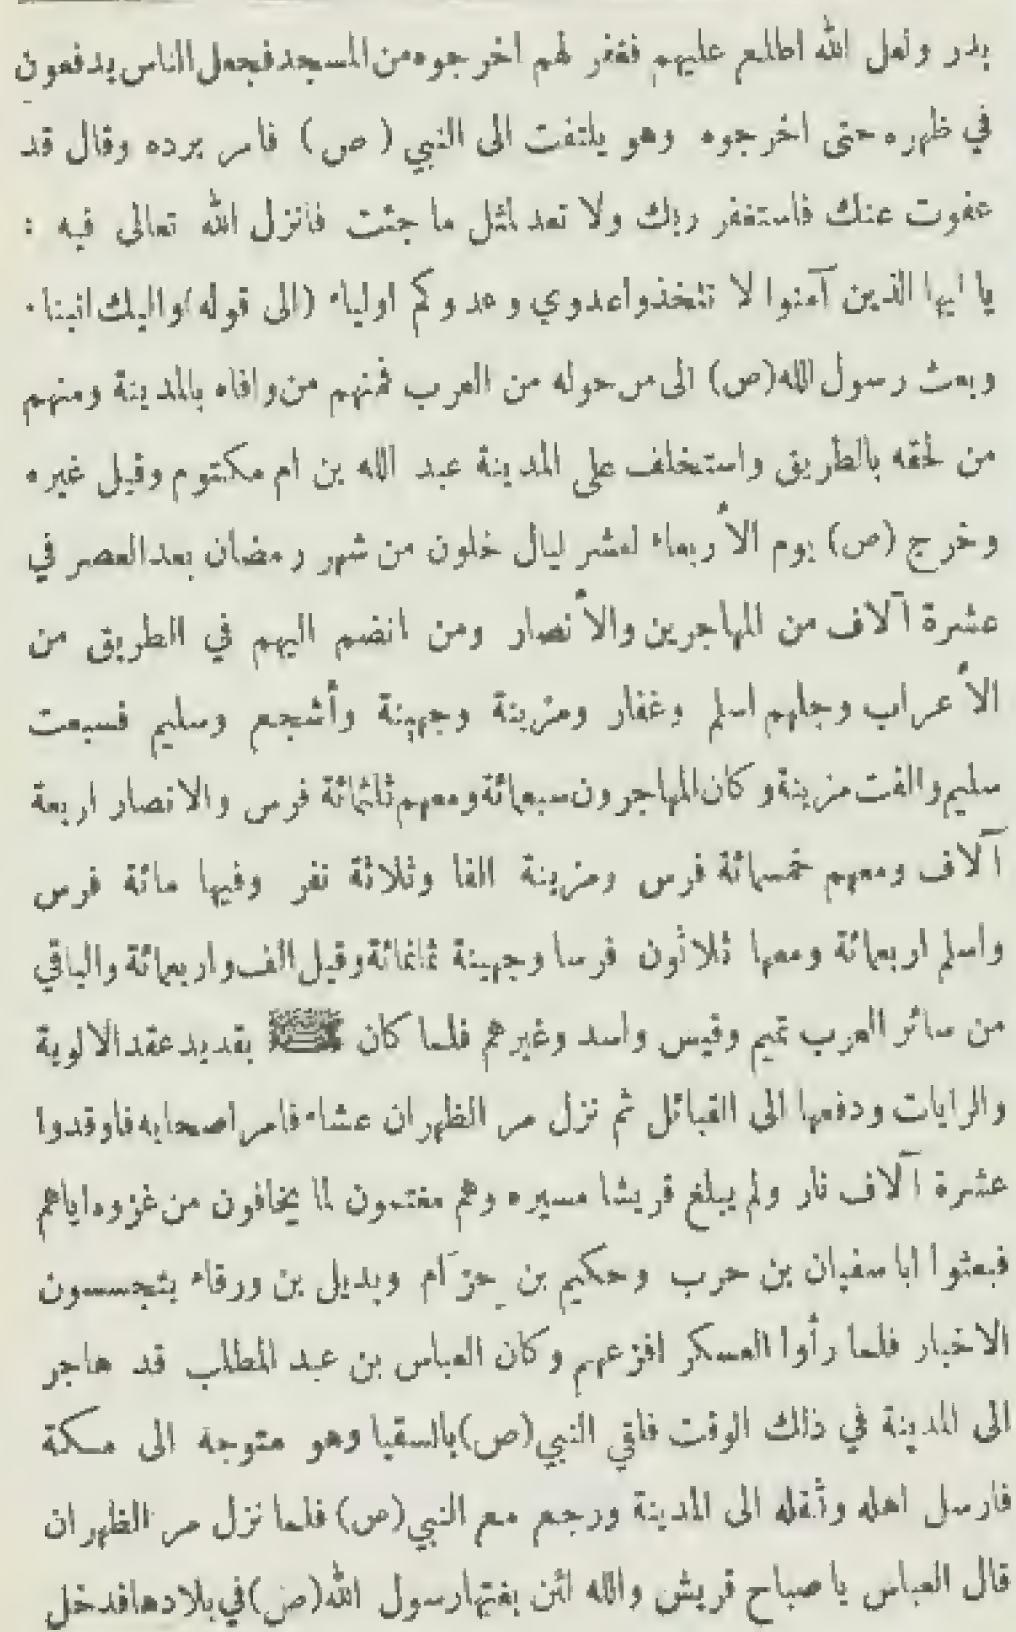 بدر ولعل الله اطلع عليهم فغفر لهم اخرجوه من المسجد فجعل الناس يدفعون
في ظهره حتى اخرجوه وهو يلتفت الى النبي (ص) فامر برده وقال قد
عفوت عنك فاستغفر ربك ولا تعد لمثل ما جئت فانزل الله تعالى فيه :
يا ايها الذين آمنوا لا تتخذوا عدوي وعدوكم اولياء (الى قوله) واليك انبنا .
وبعث رسول الله (ص) الى من حوله من العرب فمنهم من وافاه بالمدينة ومنهم
من لحقه بالطريق واستخلف على المدينة عبد الله بن ام مكتوم وقيل غيره
وخرج (ص) يوم الأربعاء لعشر ليال خلون من شهر رمضان بعد العصر في
عشرة آلاف من المهاجرين والأنصار ومن انضم اليهم في الطريق من
الأعراب وجلهم اسلم وغفار ومزينة وجهينة وأشجع وسليم فسبعت
سليم والفت مزينة وكان المهاجرون سبعمائة ومعهم ثلثمائة فرس والانصار اربعة
آلاف ومعهم خمسمائة فرس ومزينة الفا وثلاثة نفر وفيها مائة فرس
واسلم اربعمائة ومعها ثلاثون فرسا وجهينة ثمانمائة وقيل الف واربعمائة والباقي
من سائر العرب تميم وقيس واسد وغيرهم فلما كان ﷺ بقديد عقد الالوية
والرايات ودفعها الى القبائل ثم نزل مر الظهران عشاء فامر اصحابه فاوقدوا
عشرة آلاف نار ولم يبلغ قريشا مسيره وهم مغتمون لما يخافون من غزوه اياهم
فبعثوا ابا سفيان بن حرب وحكيم بن حِزَام وبديل بن ورقاء يتجسسون
الاخبار فلما رأوا العسكر افزعهم وكان العباس بن عبد المطلب قد هاجر
الى المدينة في ذلك الوقت فلقي النبي (ص) بالسقيا وهو متوجه الى مكة
فارسل اهله وثقله الى المدينة ورجع مع النبي (ص) فلما نزل مر الظهران
قال العباس يا صباح قريش والله لئن بغتها رسول الله (ص) في بلادها فدخل